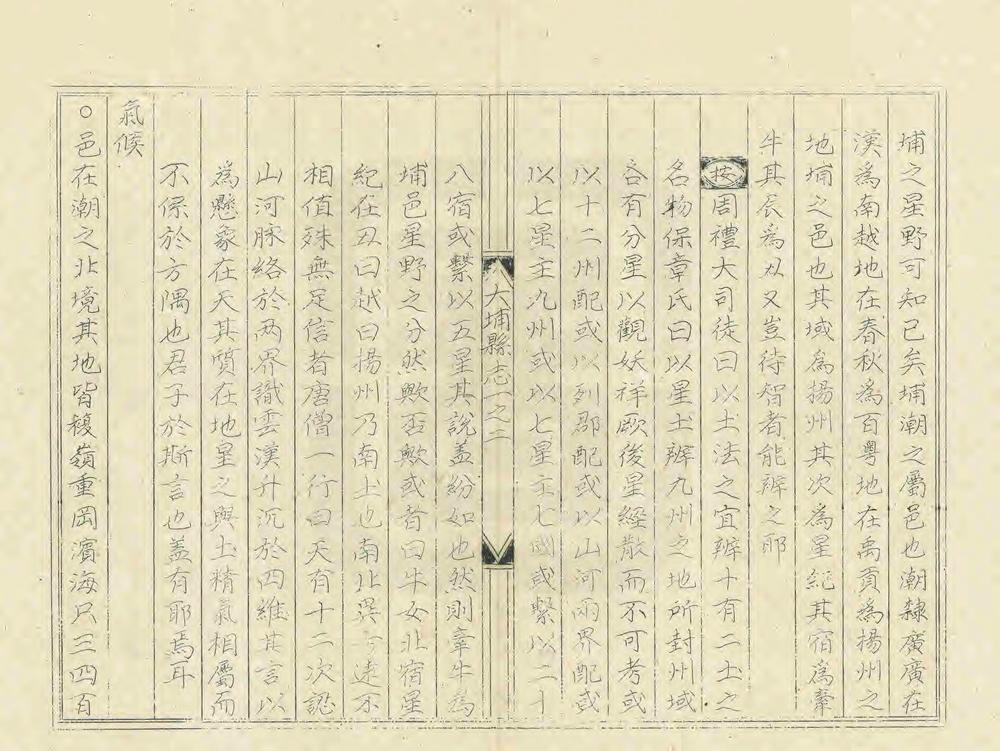 埔之星野可知已矣埔潮之屬邑也潮隸廣廣在
漢為南越地在春秋為百粵地在禹貢為揚州之
地埔之邑也其域為揚州其次為星紀其宿為牽
牛其辰為丑又豈待智者能辨之耶
按周禮大司徒曰以土法之宜辨十有二土之
名物保章氏曰以星土辨九州之地所封州域
各有分星以觀妖祥厥後星經散而不可考或
以十二州配或以列郡配或以山河兩界配或
以七星主九州或以七星主七國或繫以二十
大埔縣志一之二
八宿或繫以五星其說蓋紛如也然則牽牛為
埔邑星野之分然歟否歟或者曰牛女北宿星
紀在丑曰越曰揚州乃南土也南北異方遠不
相值殊無足信者唐僧一行曰天有十二次認
山河脉絡於两界識雲漢升沉於四維其言以
為懸象在天其質在地星之與土精氣相屬而
不係於方隅也君子於斯言也蓋有耶焉耳
氣候
○邑在潮之北境其地皆複嶺重岡濱海只三四百